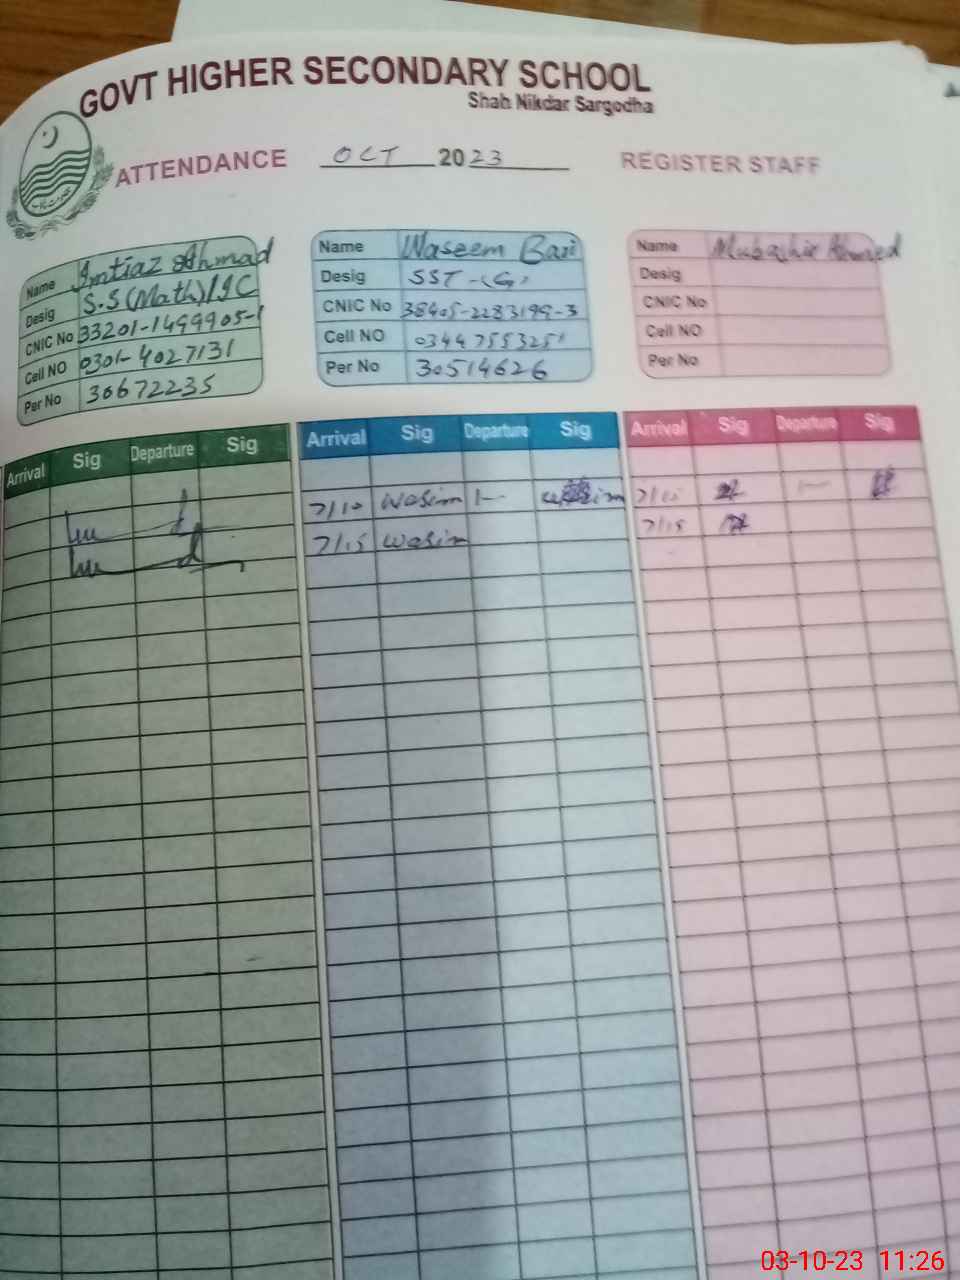 GOVT HIGHER SECONDARY SCHOOL
Shah Nikdar Sargodha
ATTENDANCE OCT 2023 REGISTER STAFF
Name Imtiaz Ahmad
Desig S.S (Math)/IC
CNIC No 33201-1499905-1
Cell NO 0301-4027131
Per No 30672235
Name Waseem Bari
Desig SST-(G)
CNIC No 38405-2283199-3
Cell NO 03447553251
Per No 30514626
Name Mubashir Ahmed
Desig
CNIC No
Cell NO
Per No
Arrival Sig Departure Sig
Arrival Sig Departure Sig
7/10 Wasim 1-
7/15 Wasim
Arrival Sig Departure Sig
7/15
03-10-23 11:26